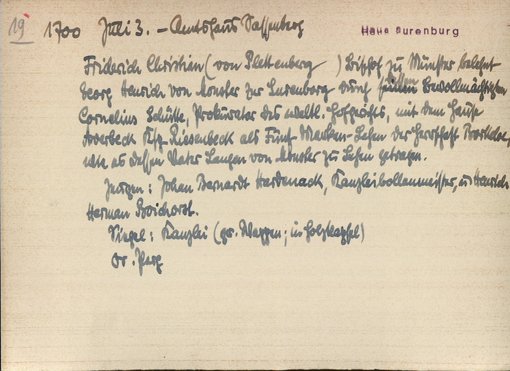 19 1700 Juli 3. – Amtshaus Sassenberg Haus Surenburg
Friderich Christian (von Plettenberg ) Bischof zu Münster belehnt
Georg Henrich von Monster zur Surenburg durch seinen Bevollmächtigten
Cornelius Schütte, Prokurator des weltl. Hofgerichts, mit dem Hause
Averbeck Ksp. Riesenbeck als Fünf Marken-Lehen der Herrschaft Borkeloe,
wie es dessen Vater von Monster zu Lehen getragen.
Zeugen: Johan Bernardt Hardenack, Kanzleibottenmeister, u. Henrich
Herman Boichorst.
Siegel: Kanzlei (gr. Wappen; in Holzkapsel)
Or. Perg